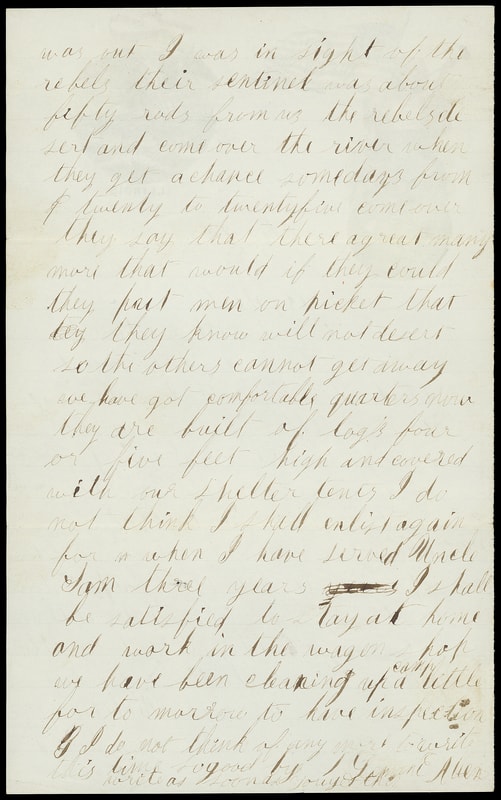 was out I was in sight of the
rebels their sentinel was about
fifty rods from us the rebels de
sert and come over the river when
they get a chance somedays from
twenty to twentyfive come over
they say that there a great many
more that would if they could
they put men on picket that
they know will not desert
so the others cannot get away
we have got comfortable quarters now
they are built of logs four
or five feet high and covered
with our shelter tents I do
not think I shall enlist again
for when I have served Uncle
Sam three years I shall
be satisfied to stay at home
and work in the wagon shop
we have been cleaning up camp a little
for to morrow to have inspection
I do not think of any more to write
this time so good by Allen
write as soon as you get this